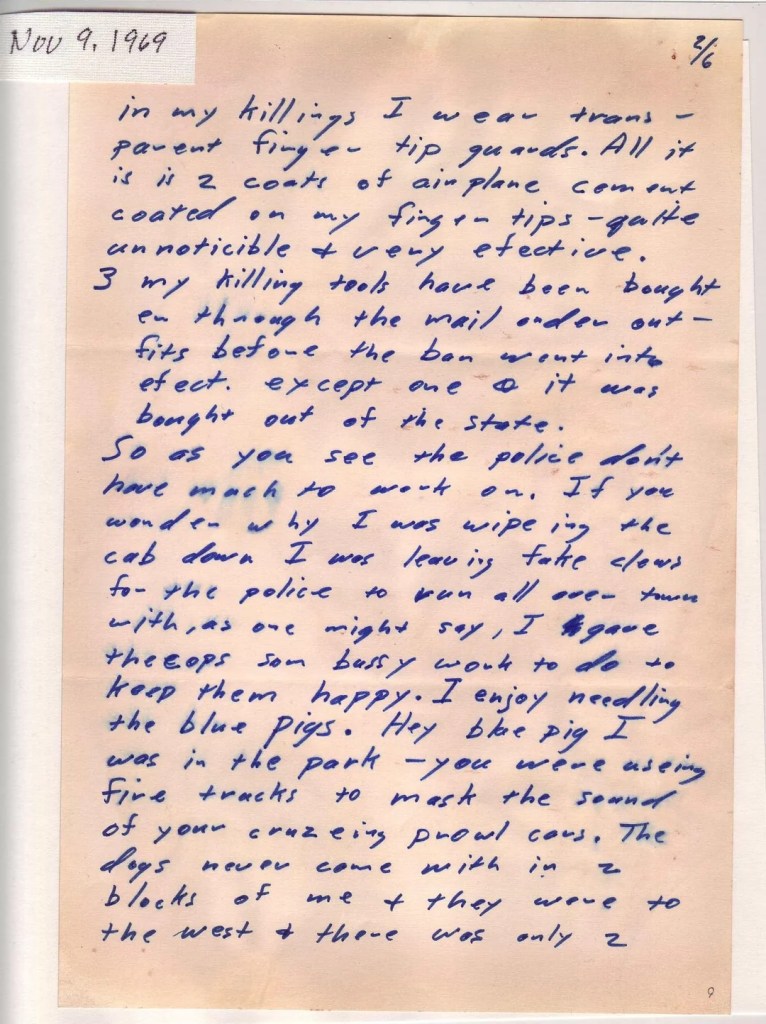 Nov 9, 1969
2/6
in my killings I wear trans-
parent finger tip guards. All it
is is 2 coats of airplane cement
coated on my finger tips - quite
unnoticible & very efective.
3 my killing tools have been bought
en through the mail order out-
fits before the ban went into
efect. except one & it was
bought out of the state.
So as you see the police don't
have much to work on. If you
wonder why I was wipeing the
cab down I was leaving fake clews
for the police to run all over town
with, as one might say, I gave
the cops som bussy work to do to
keep them happy. I enjoy needling
the blue pigs. Hey blue pig I
was in the park - you were useing
fire trucks to mask the sound
of your cruzeing prowl cars. The
dogs never came with in 2
blocks of me & they were to
the west & there was only 2